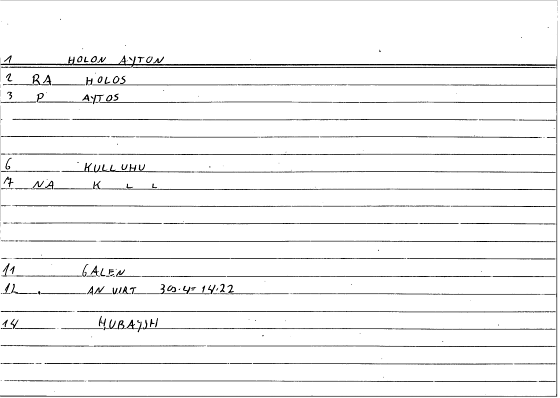 1 HOLON AYTON
2 RA HOLOS
3 P AYTOS
6 KULLUHU
7 NA K L L
11 GALEN
12 AN VIRT 14.22
14 HUBAYSH